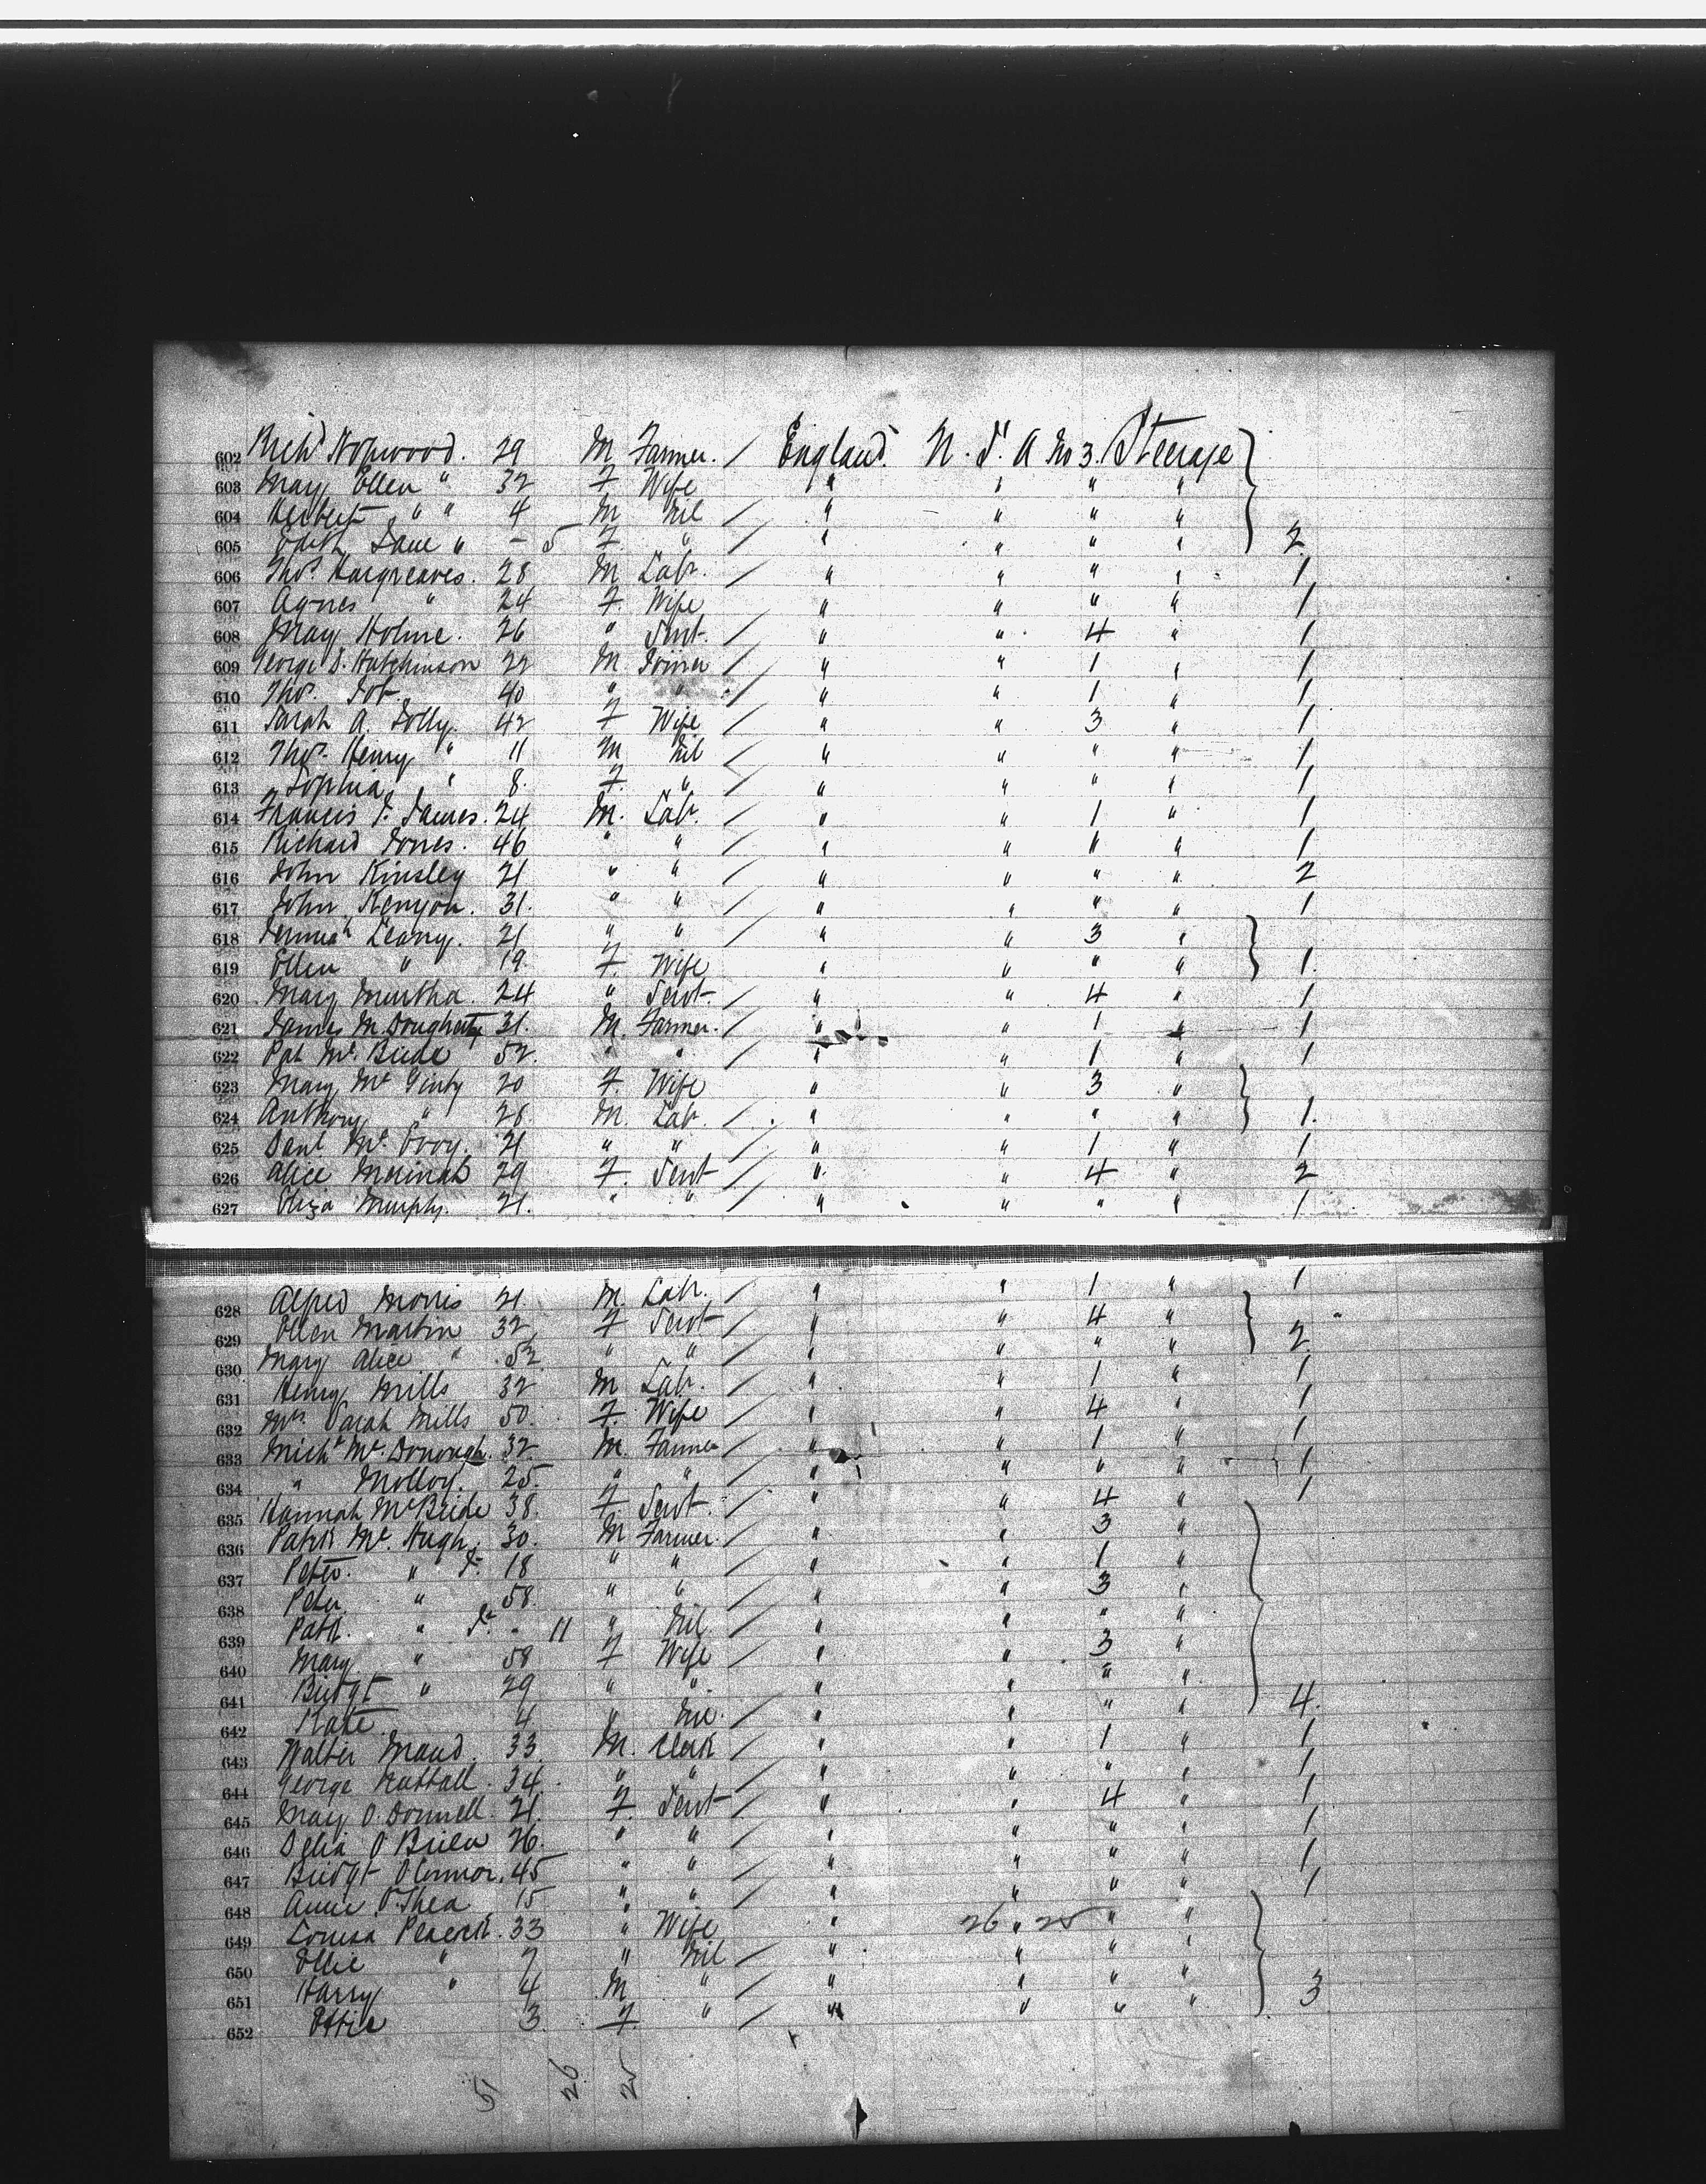 602 Rich^d Hopwood. 29 M Farmer. / England. N. S. A No 3. Steerage
603 Mary Ellen " 32 F Wife " " " "
604 Herbert " " 4 M Nil / " " " "
605 Edith Jane " - 5 F " / " " " " 2
606 Tho^s Hargreaves. 28 M Lab^r. / " " " " 1
607 Agnes " 24 F. Wife " " " " 1
608 Mary Holme. 26 " Servt. / " " 4 " 1
609 George S. Hutchinson 22 M Joiner / " " 1 " 1
610 Tho^s. Job. 40 " " / " " 1 " 1
611 Sarah A. Jolly. 42 F Wife / " " 3 " 1
612 Tho^s. Henry " 11 M Nil / " " " " 1
613 Sophia " 8. F. " / " " " " 1
614 Francis J. James. 24 M. Lab^r. / " " 1 " 1
615 Richard Jones. 46 " " / " " " " 1
616 John Kinsley 21 " " / " " " " 2
617 John Kenyon. 31. " " / " " " " 1
618 Jermiah Leary. 21 " " / " " 3 "
619 Ellen " 19. F. Wife " " " " 1.
620 Mary Murtha. 24 " Servt. / " " 4 " 1
621 James M. Dougherty 31. M. Farmer. / " " 1 " 1
622 Pat Mc. Bride 52. " " / " " 1 " 1
623 Mary Mc Ginty 20 F. Wife " " 3 "
624 Anthony " 28 M. Lab^r. / " " " " 1.
625 Danl Mc. 21 " " / " " 1 " 1
626 Alice 29 F. Servt / " " 4 " 2
627 Eliza Murphy. 21. " " / " " " " 1
628 Alfred Morris 21. M. Lab^r. / " " 1 " 1
629 Ellen Martin 32 F Servt / " " 4 "
630 Mary Alice " 52 " " / " " " " 2
631 Henry Mills 32 M Lab^r. / " " 1 " 1
632 Mrs. Sarah Mills 50. F. Wife / " " 4 " 1
633 Mich^l Mc. Donough. 32. M. Farmer / " " 1 " 1
634 " Molloy. 25. " " / " " " " 1
635 Hannah McBride 38. F Servt. / " " 4 " 1
636 Patrk Mc. Hugh. 30. M Farmer. / " " 3 "
637 Peter. " 18 " " / " " 1 "
638 Peter " 58. " " / " " 3 "
639 Patk. " - 11 " Nil / " " " "
640 Mary " 58 F Wife / " " 3 "
641 Bridgt " 29 " " " " " "
642 Kate 4 " Nil. / " " " " 4.
643 Walter Maud. 33. M. Clerk / " " 1 " 1
644 George Nuttall. 34. " " / " " " " 1
645 Mary O. Donnell. 21. F. Servt / " " 4 " 1
646 Delia O Brien 26. " " / " " " " 1
647 Bridgt O Connor. 45 " " / " " " " 1
648 Annie O. Shea 15 " " / " " " " 1
649 Louisa Peacock. 33 " Wife " 26 " 25 " "
650 Ellie " 7 " Nil / " " " "
651 Harry " 4 M " / " " " " 3
652 Ettie 3. F. " / " " " "
5 26 25